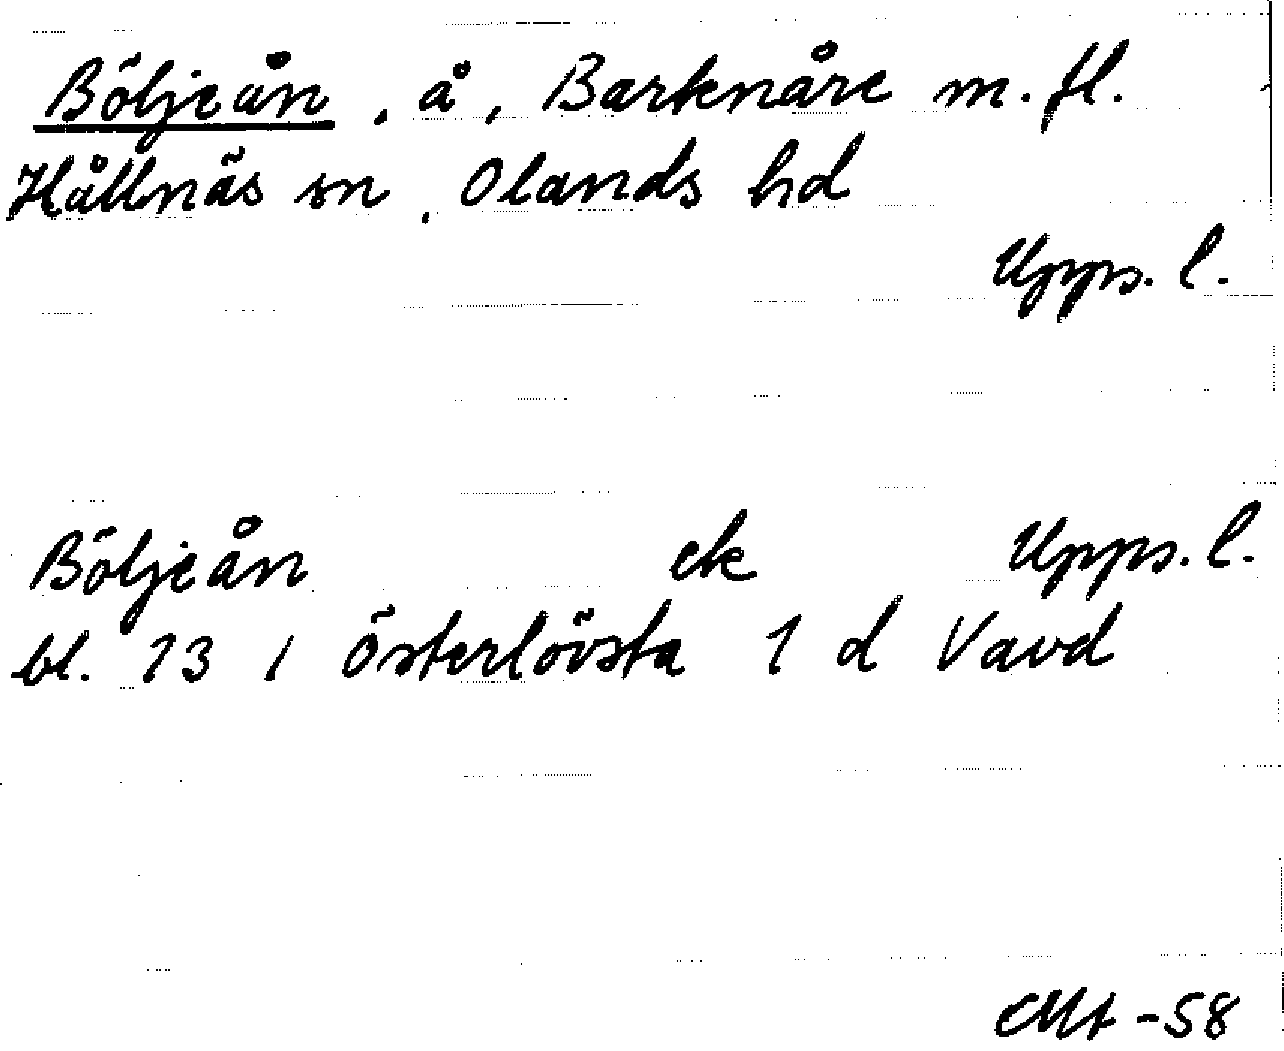 Böljeån, å, Barknåre m.fl.
Hållnäs sn, Olands hd
Upps. l.
Böljeån ek Upps. l.
bl. 13 / Österlövsta 1 d Vavd
Mt -58